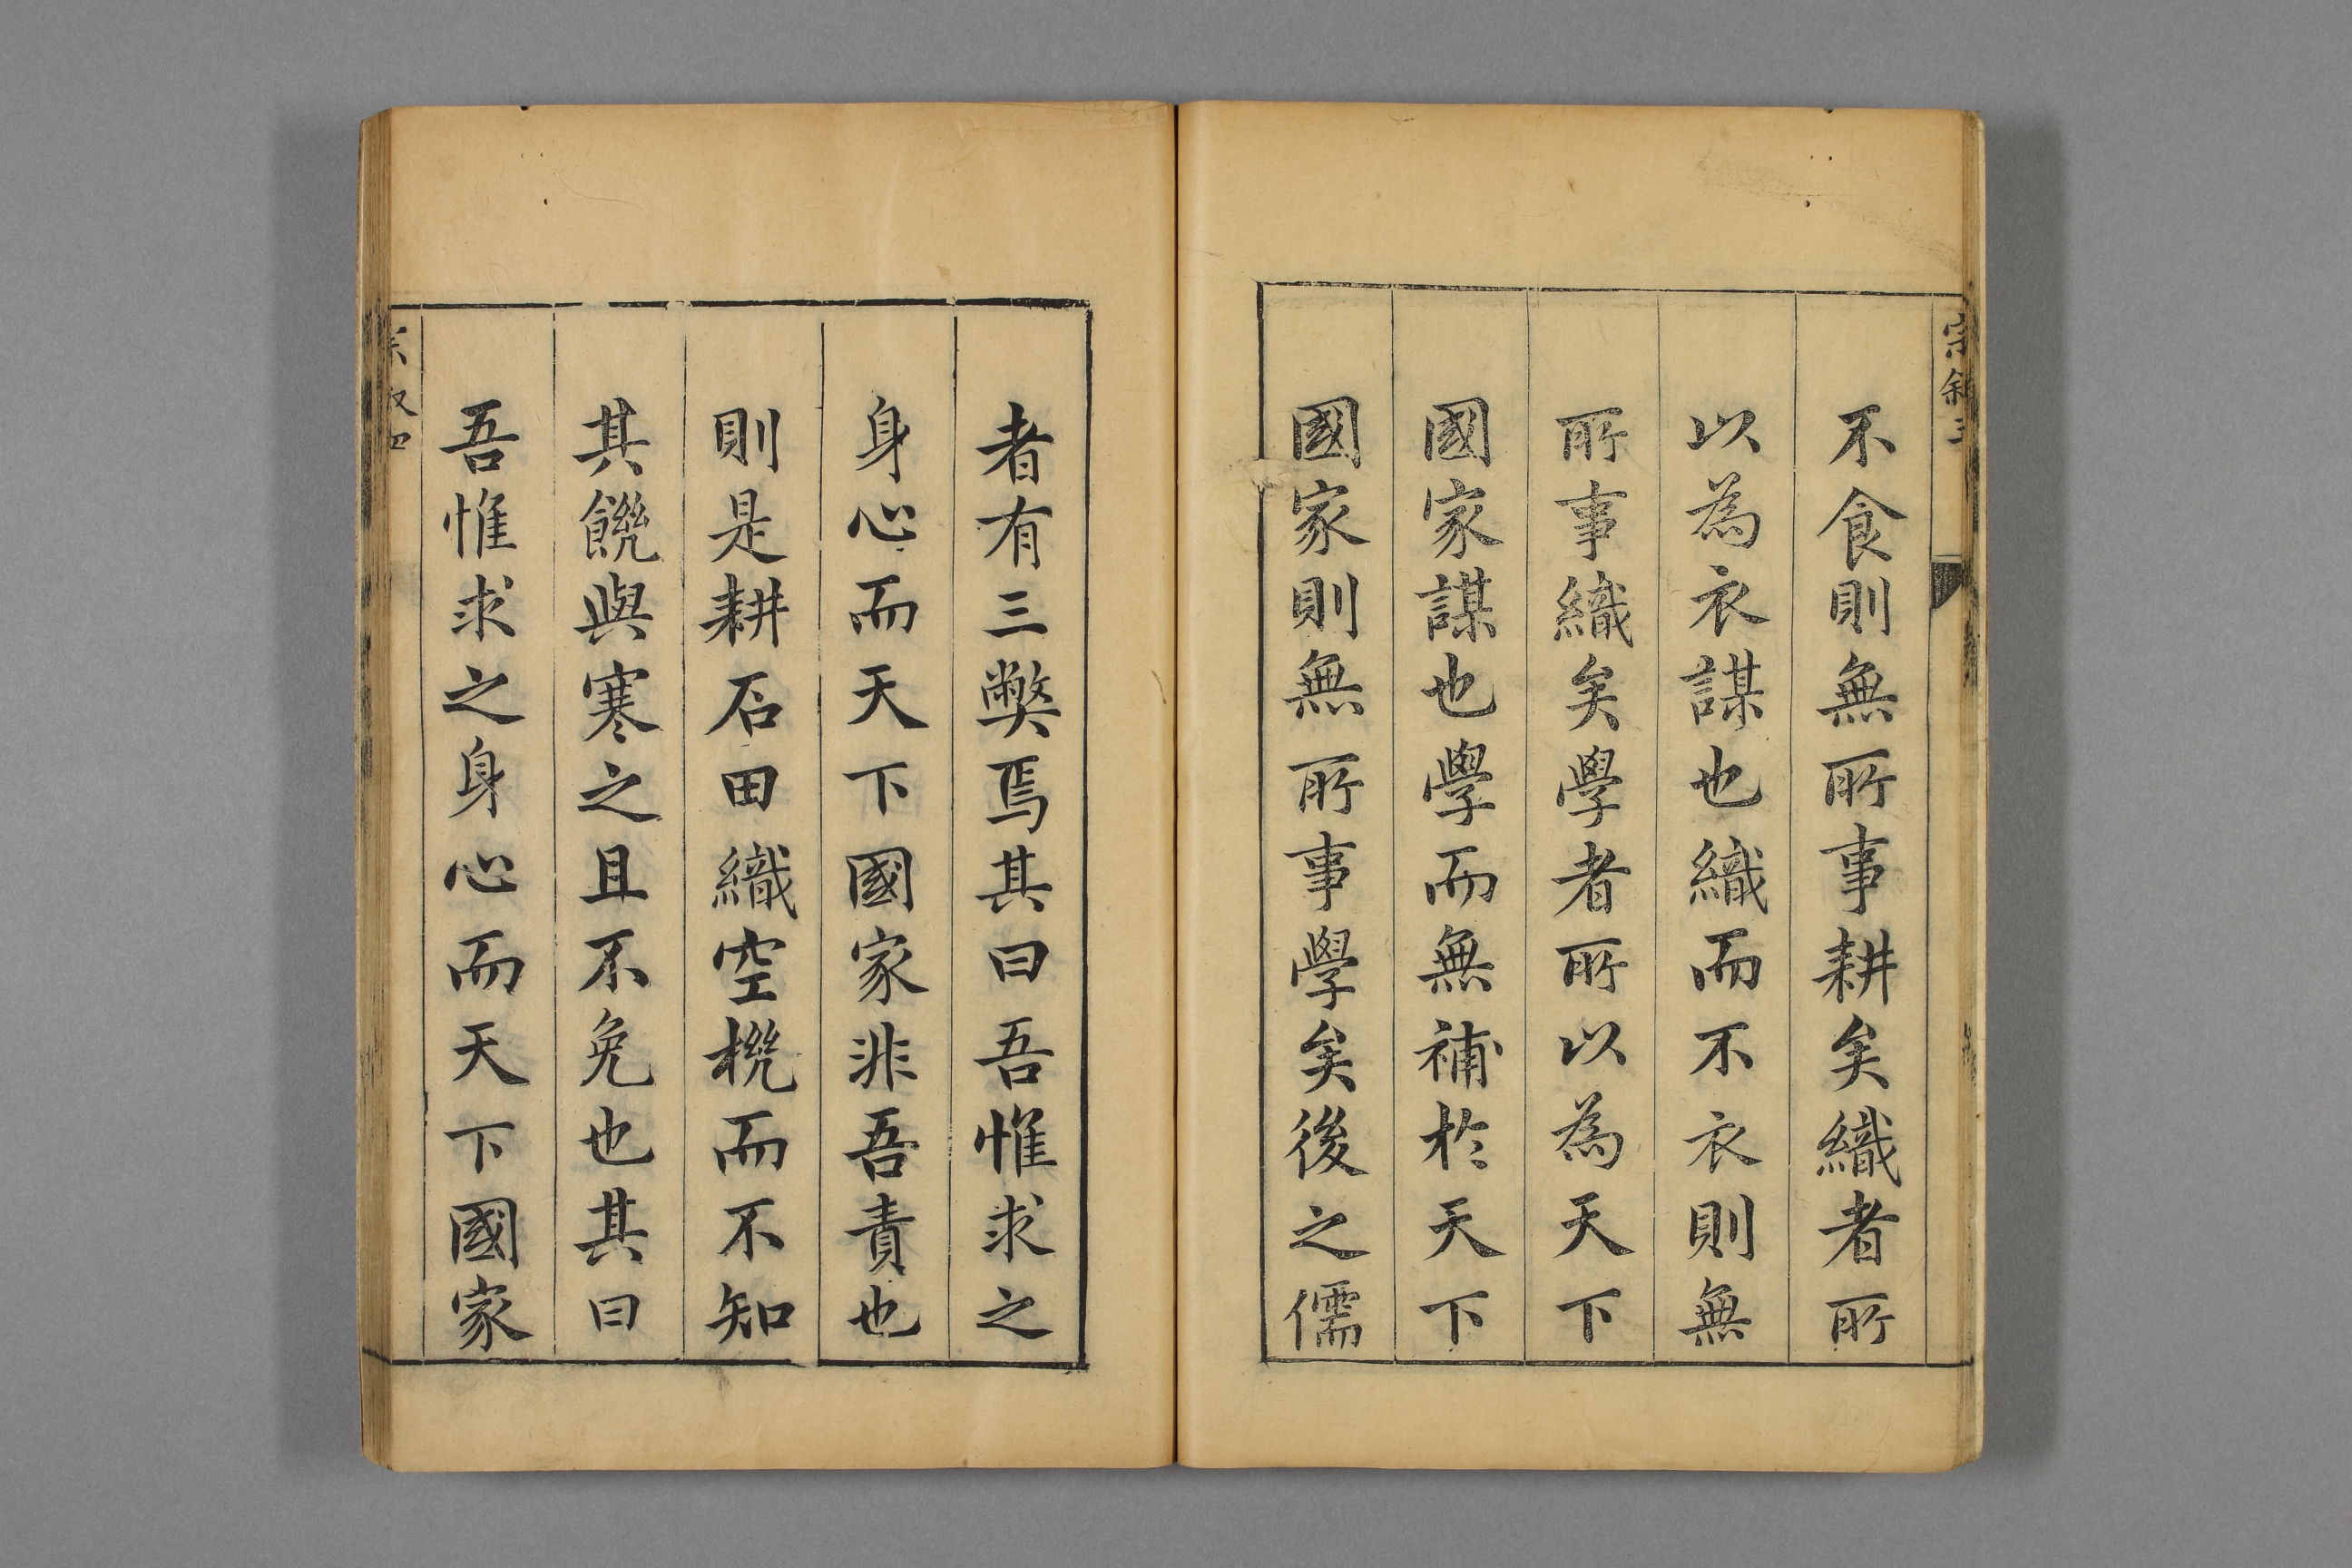 宗敘三
不食則無所事耕矣織者所
以為衣謀也織而不衣則無
所事織矣學者所以為天下
國家謀也學而無補於天下
國家則無所事學矣後之儒
者有三獘焉其曰吾惟求之
身心而天下國家非吾責也
則是耕石田織空機而不知
其饑與寒之且不免也其曰
吾惟求之身心而天下國家